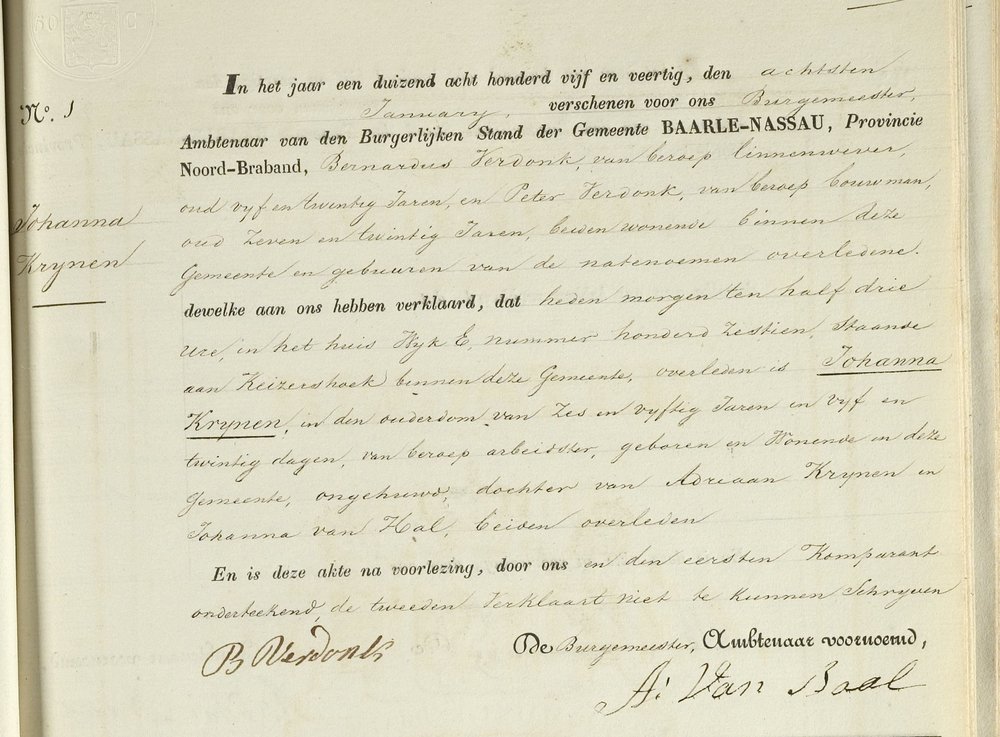 60 C
In het jaar een duizend acht honderd vijf en veertig, den achtsten
No. 1
January, verschenen voor ons Burgemeester,
Ambtenaar van den Burgerlijken Stand der Gemeente BAARLE-NASSAU, Provincie
Noord-Braband, Bernardus Verdonk, van beroep linnenwever,
oud vyf en twintig Jaren, en Peter Verdonk, van beroep bouwman,
Johanna
oud Zeven en twintig Jaren, beiden wonende binnen deze
Krynen
Gemeente en gebueren van de natenoemen overledene.
dewelke aan ons hebben verklaard, dat heden morgen ten half drie
ure, in het huis Wyk E, nummer honderd Zestien, Staande
aan Keizershoek binnen deze Gemeente, overleden is Johanna
Krynen, in den ouderdom van Zes en vyftig Jaren en vyf en
twintig dagen, van beroep arbeidster, geboren en Wonende in deze
Gemeente, ongehuwd, dochter van Adriaan Krynen en
Johanna van Hal, beiden overleden
En is deze akte na voorlezing, door ons en den eersten Komparant
onderteekend, de tweeden Verklaart niet te kunnen Schryven
De Burgemeester, Ambtenaar voornoemd,
B Verdonk
A: Van Baal